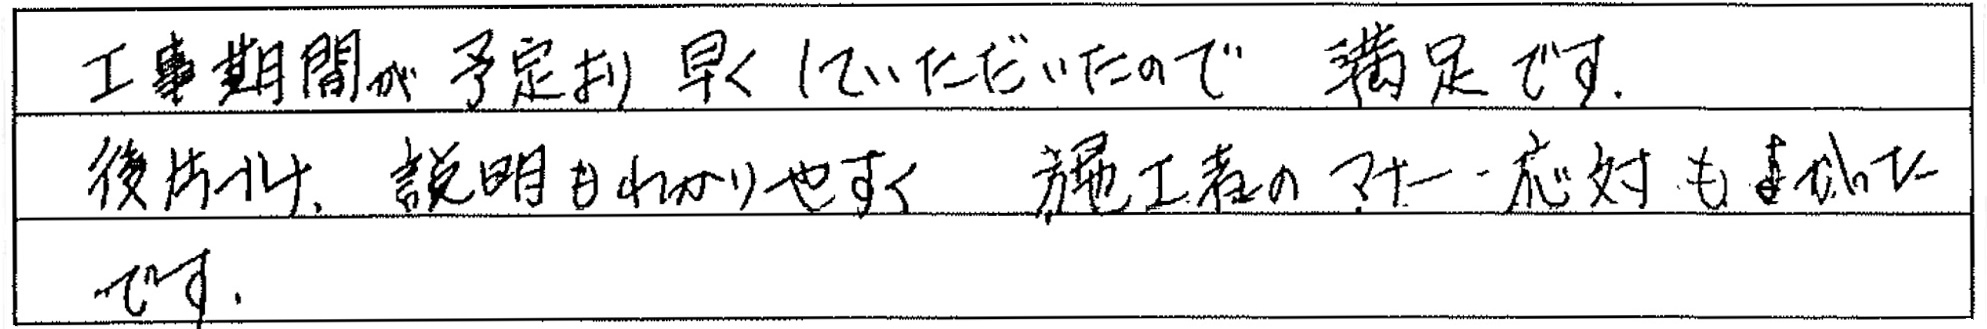 工事期間が予定より早くしていただいたので 満足です.
後片付け、説明もわかりやすく 施工者のマナー・応対もよかった
です.